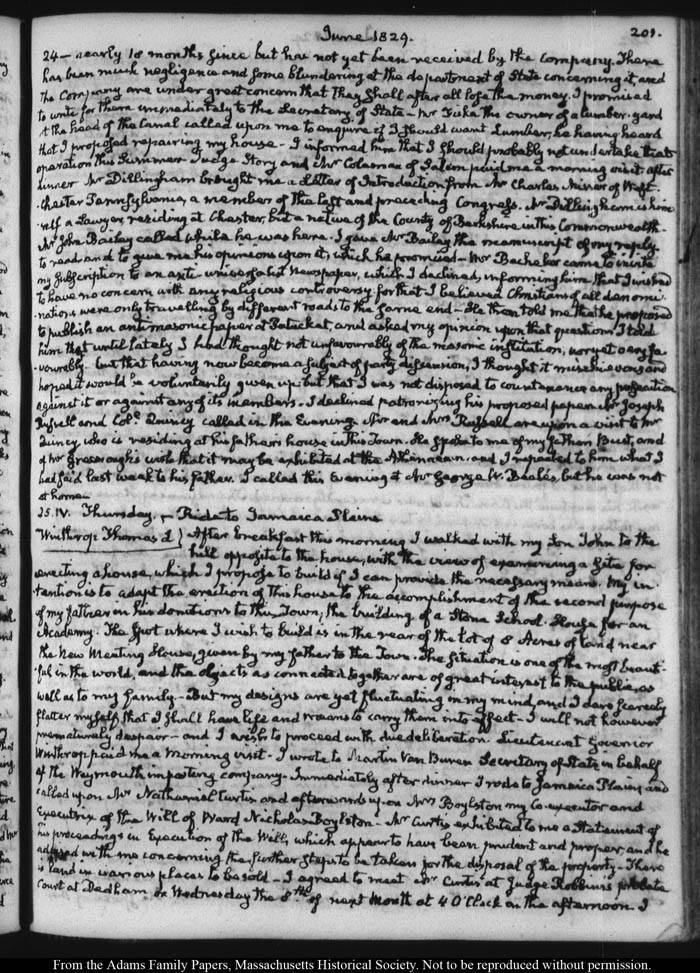 June 1829.
201.
24 — nearly 18 months since but has not yet been received by the Company. There
has been much negligence and some blundering at the department of State concerning it, and
the Company are under great concern that they shall after all lose the money. I promised
to write for them immediately to the Secretary of State — Mr Fiske the owner of a lumber-yard
at the head of the Canal called upon me to enquire if I should want Lumber, he having heard
that I proposed repairing my house — I informed him that I should probably not undertake that
operation this Summer — Judge Story and Mr Coleman of Salem paid me a morning visit. after
dinner Mr Dillingham brought me a Letter of Introduction from Mr Charles Miner of West-
-Chester Pennsylvania, a member of the last and preceding Congress. Mr Dillingham is him
-self a Lawyer residing at Chester, but a native of the County of Berkshire in this Commonwealth.
Mr John Bailey called while he was here. I gave Mr Bailey the manuscript of my reply
to read and to give me his opinions upon it, which he promised — Mr Bacheler came to invite
my Subscription to an anti-universalist Newspaper, which I declined, informing him that I wished
to have no concern with any religious controversy for that I believed Christians of all denomi-
-nations were only travelling by different roads to the same end — He then told me that he proposed
to publish an anti masonic paper at Patucket, and asked my opinion upon that question. I told
him that until lately I had thought not unfavourably of the masonic institution, nor yet very fa-
-vourably. but that having now become a subject of party dissension, I thought it mischievous and
hoped it would be voluntarily given up; but that I was not disposed to countenance any persecution
against it or against any of its members. I declined patronizing his proposed paper. Mr Joseph
Russell and Colo. Quincy called in the Evening. Mr and Mrs Russell are upon a visit to Mr
Quincy who is residing at his father's house in this Town. He spoke to me of my father's Bust, and
of Mr Greenough's wish that it may be exhibited at the Athenaeum. and I repeated to him what I
had said last week to his father. I called this Evening at Mr George W. Beale's, but he was not
at home.
25. IV. Thursday. — Ride to Jamaica Plains
Winthrop Thomas L } After breakfast this morning I walked with my Son John to the
hill opposite to the house, with the view of examining a Site for
erecting a house, which I propose to build if I can provide the necessary means. My in-
-tention is to adapt the erection of this house to the accomplishment of the second purpose
of my father in his donations to this Town, the building of a Stone School House for an
Academy. The Spot where I wish to build is in the rear of the lot of 8 Acres of Land near
the New Meeting House, given by my father to the Town. The Situation is one of the most beauti-
-ful in the world, and the objects as connected together are of great interest to the public, as
well as to my family — But my designs are yet fluctuating in my mind, and I dare scarcely
flatter myself that I shall have life and means to carry them into effect — I will not however
prematurely despair — and I wish to proceed with due deliberation. Lieutenant Governor
Winthrop paid me a morning visit — I wrote to Martin Van Buren Secretary of State in behalf
of the Weymouth importing company — Immediately after dinner I rode to Jamaica Plains and
called upon Mr Nathaniel Curtis and afterwards upon Mrs Boylston my Co-executor and
Executrix of the Will of Ward Nicholas Boylston. Mr Curtis exhibited to me a Statement of
his proceedings in Execution of the Will, which appear to have been prudent and proper, and he
advised with me concerning the further steps to be taken for the disposal of the property — There
is land in various places to be sold — I agreed to meet Mr Curtis at Judge Robbins's probate
Court at Dedham on Wednesday the 8th of next Month at 4 O'Clock in the afternoon. I
From the Adams Family Papers, Massachusetts Historical Society. Not to be reproduced without permission.